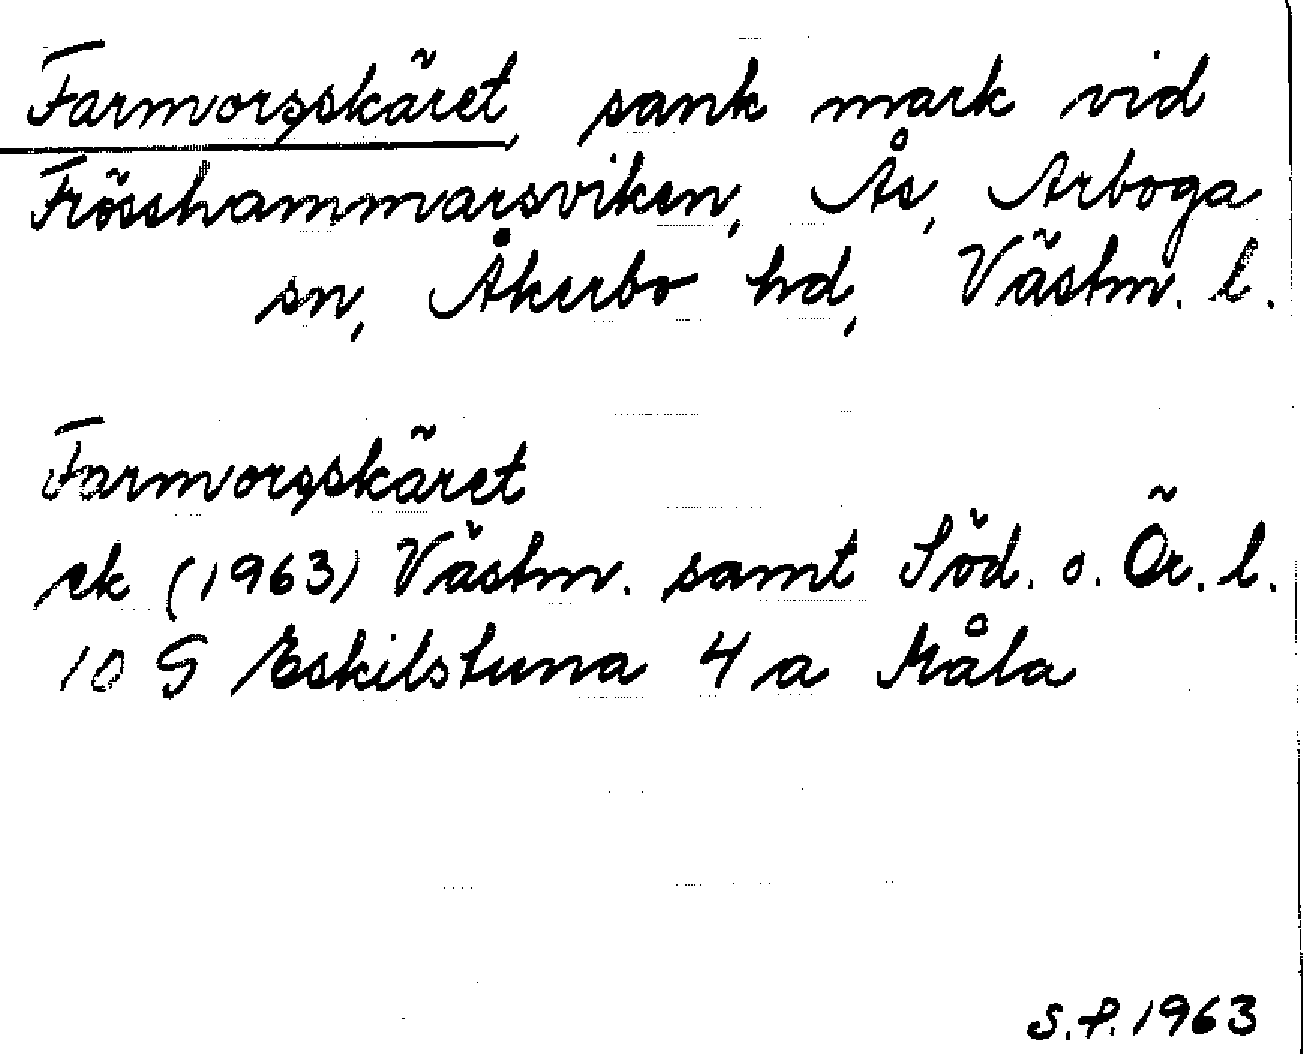 Farmorsskäret, sank mark vid
Frösshammarsviken, Ås, Arboga
sn, Åkerbo hd, Västm. l.
Farmorsskäret
ek (1963) Västm. samt Söd. o. Ör. l.
10 G Eskilstuna 4 a Måla
S.P. 1963